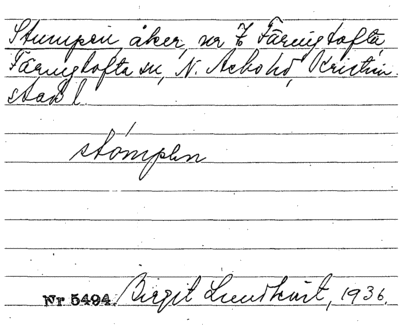 Stumpen åker, nr 7 Färingtofta,
Färingtofta sn, N. Åsbo hd, Kristian-
stad l.
stómpen
Nr 5494. Birgit Lundkvist, 1936.